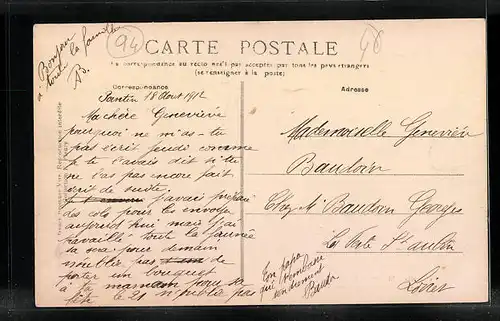 Bonjour
à toute la famille
B.
94
CARTE POSTALE
La correspondance au recto n'est pas acceptée par tous les pays étrangers
(se renseigner à la poste)
Correspondance
Adresse
Pantin 18 Aout 1912
Ma chère Geneviève
pourquoi ne m'as-tu
pas écrit jeudi comme
je te l'avais dit si tu
ne l'as pas encore fait
écrit de suite.
j'avais préparé
des cols pour les envoyer
aujourd'hui mais j'ai
travaillé toute la journée
sa sera pour demain
n'oublie pas de
porter un bouquet
à ta maman pour sa
fête le 21 n'oublie pas
Ton papa
qui t'embrasse
tendrement
Mademoiselle Geneviève
Baudoin
Chez M. Baudoin Georges
La Ferté St Aubin
Loiret